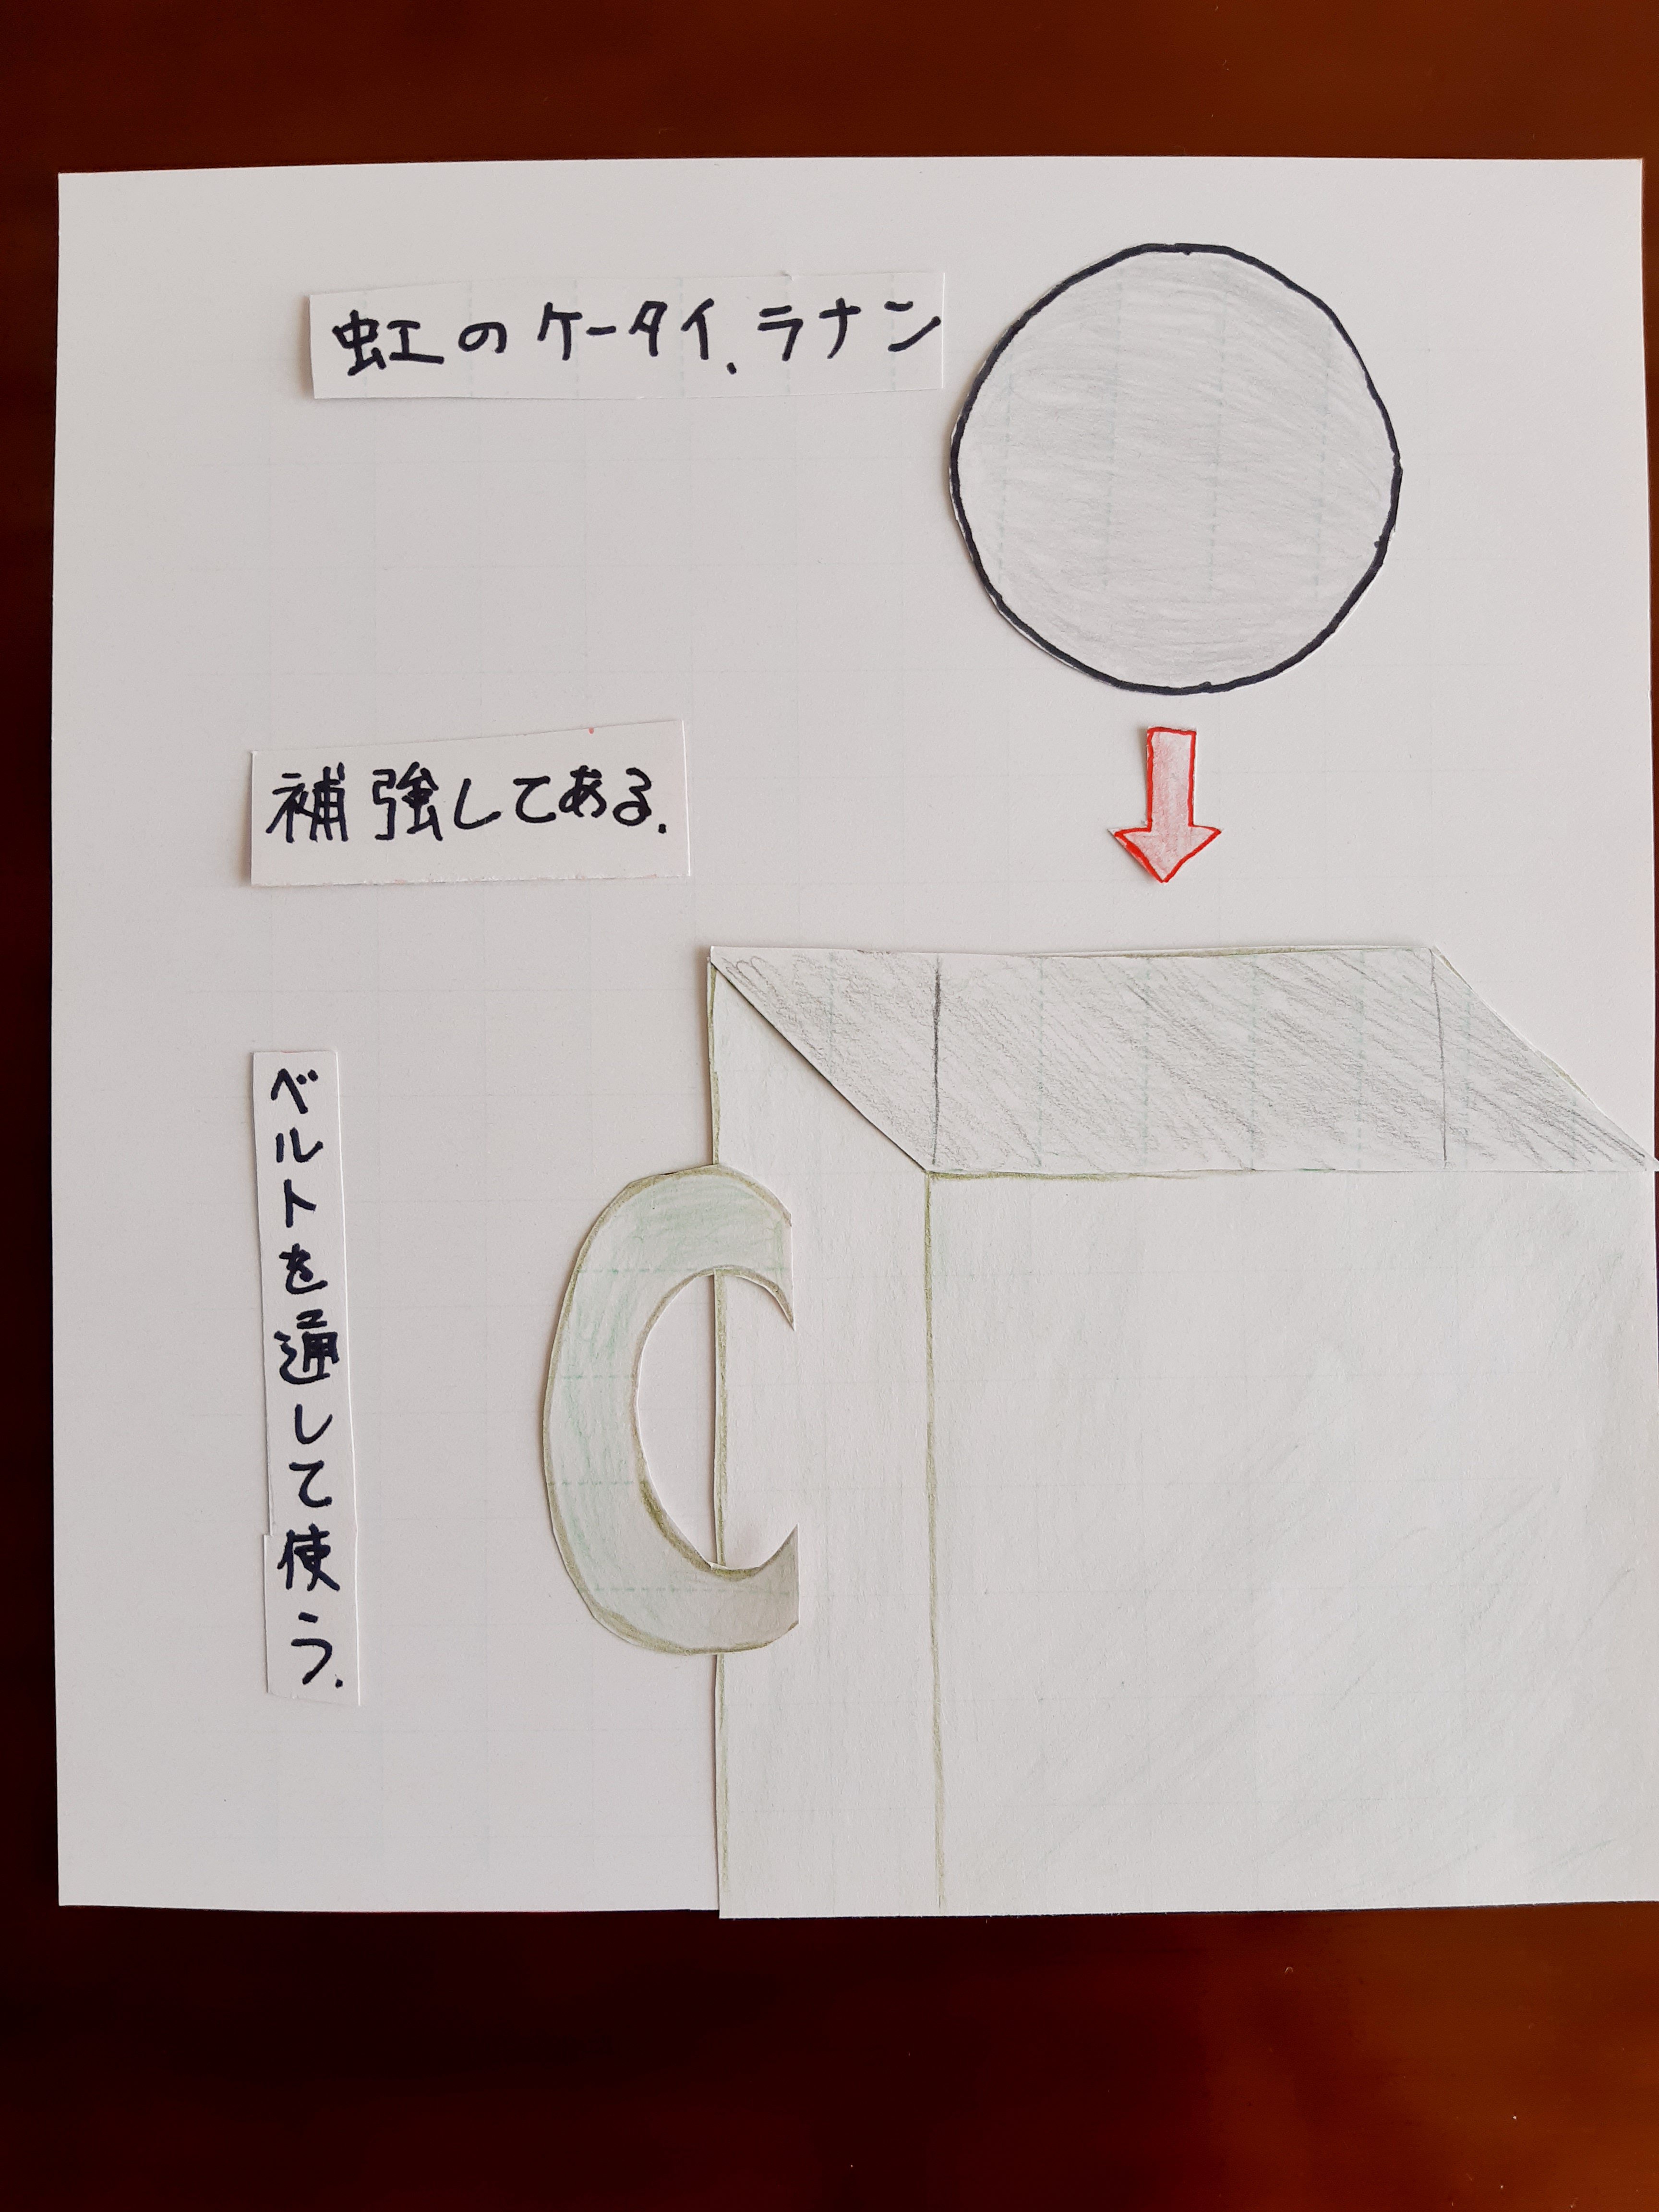 虹のケータイ.ラナン
補強してある.
ベルトを通して使う.